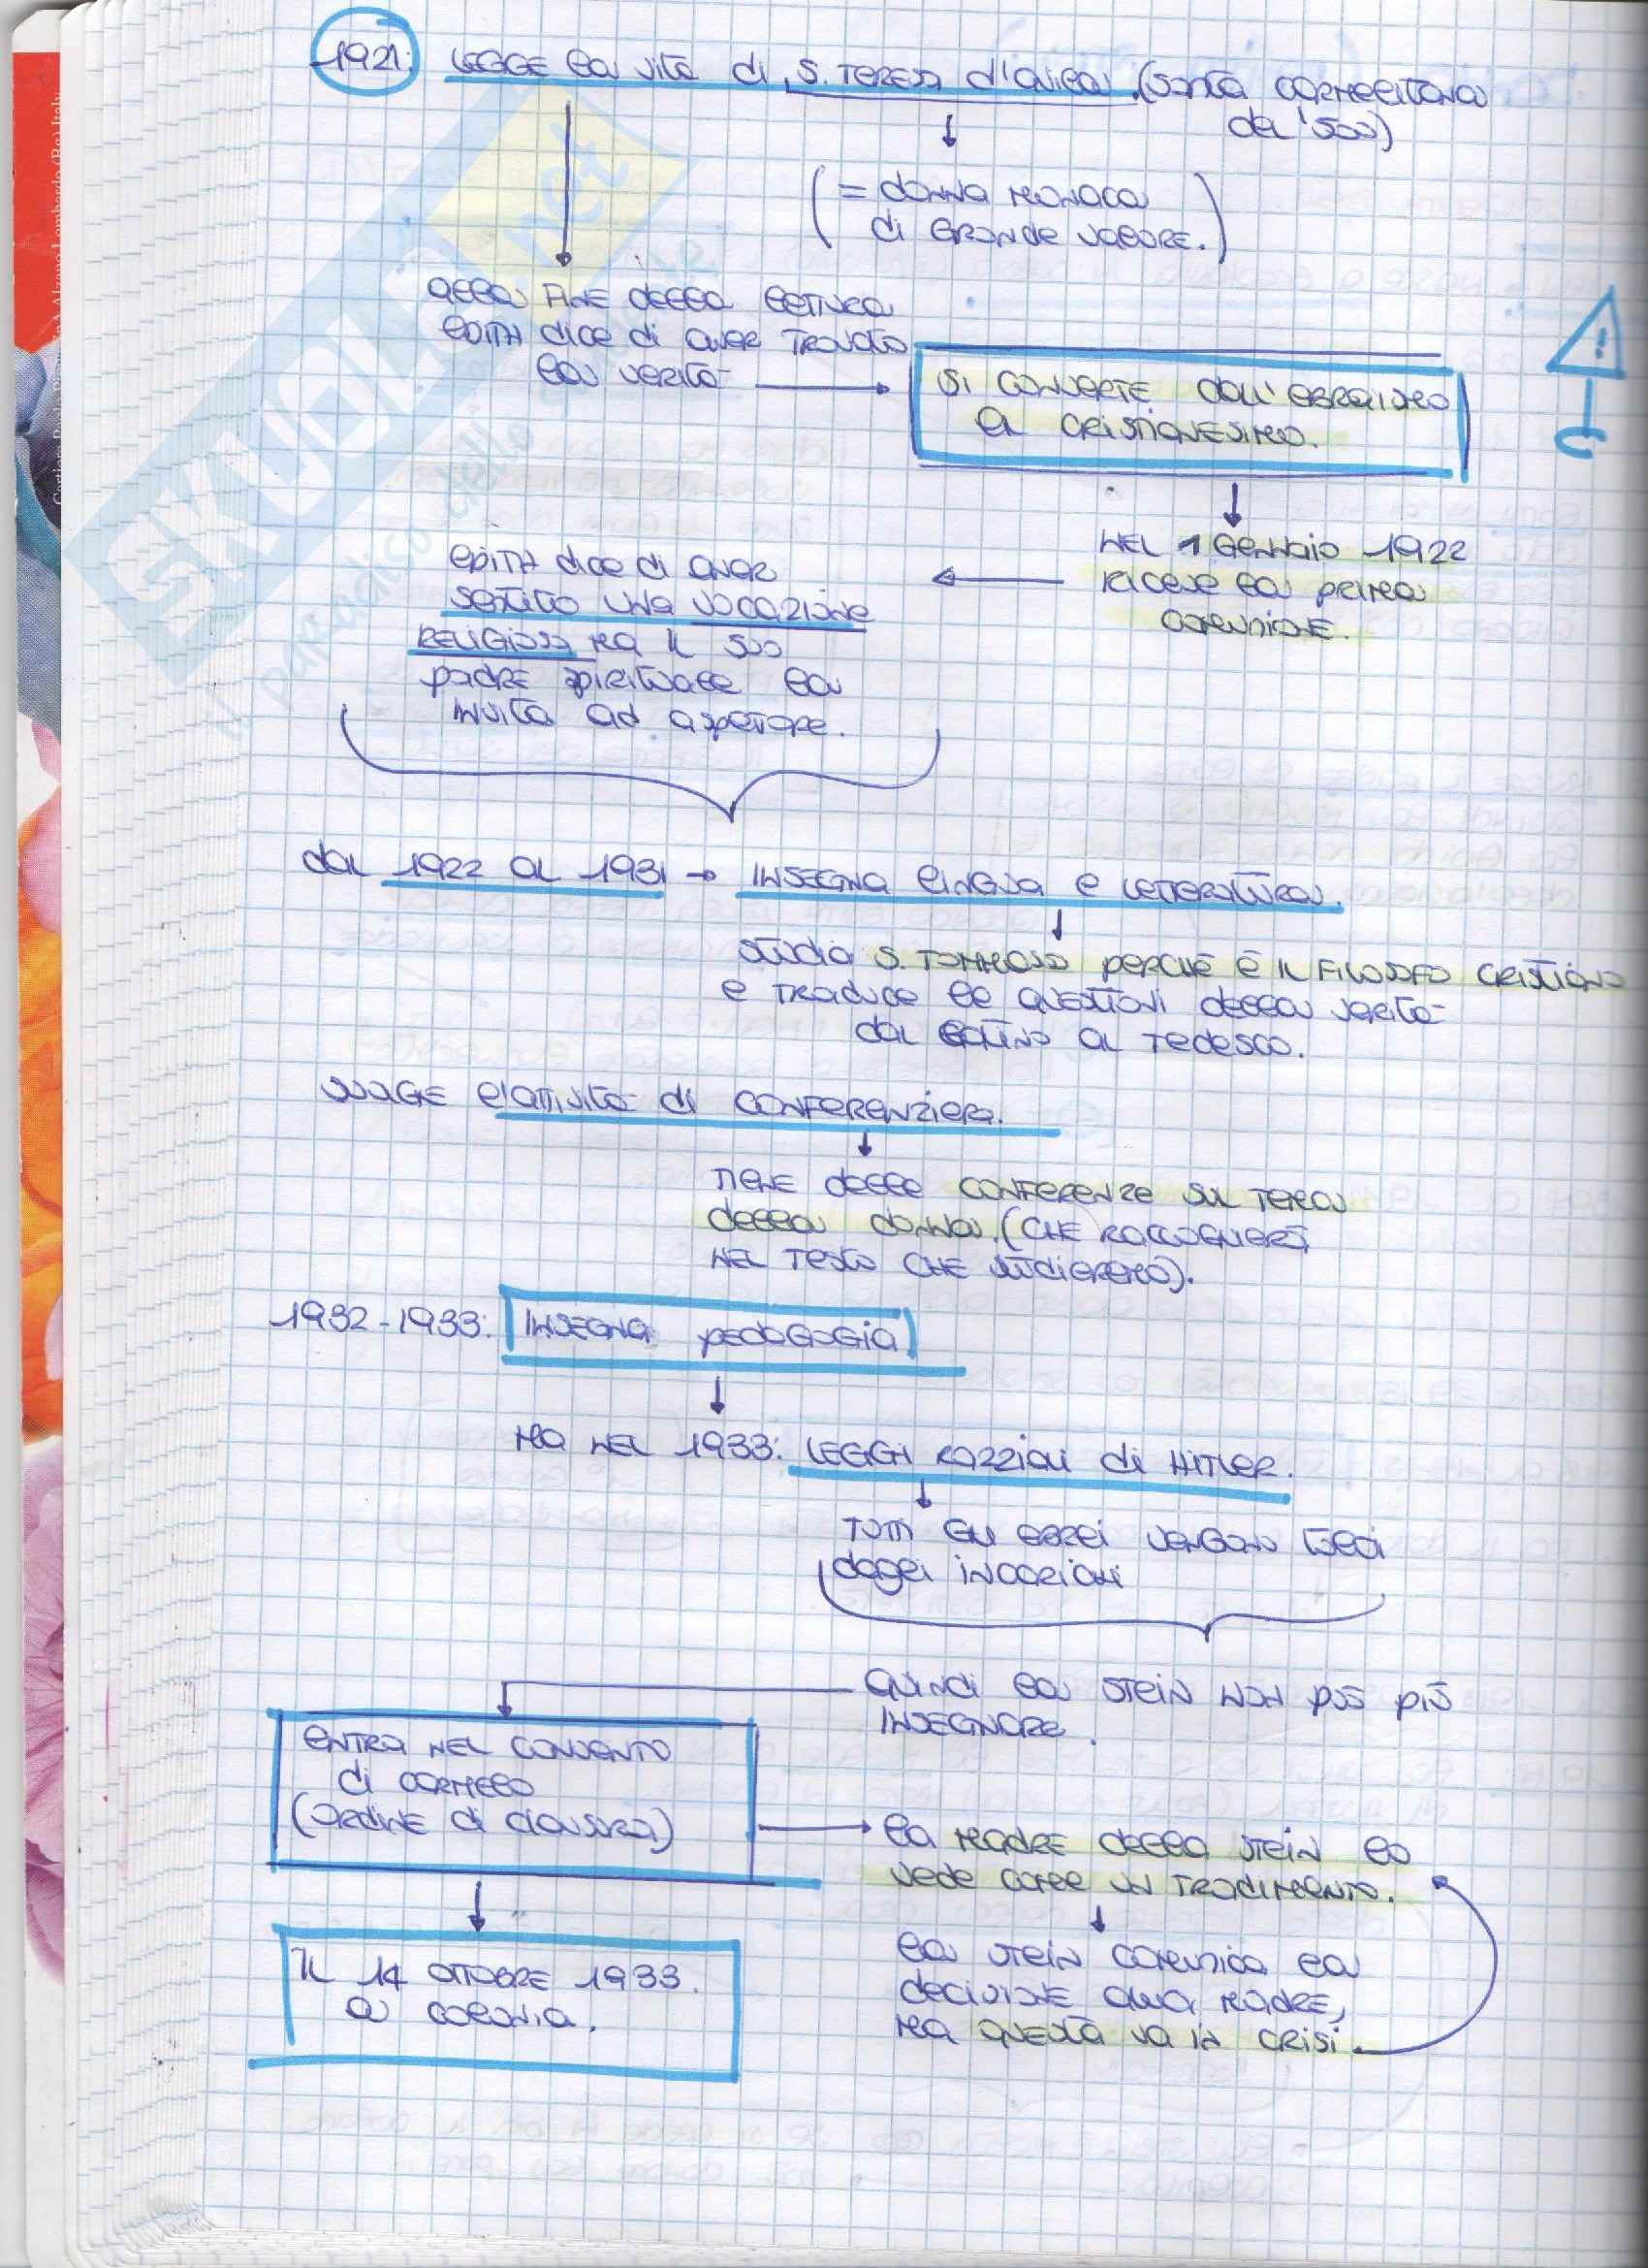 1921: LEGGE la vita di S. TERESA d'Avila (santa carmelitana
del '500)
(= donna monaca
di grande valore.)
alla fine della lettura
Edith dice di aver trovato
la verità
si converte dall'ebraismo
al cristianesimo.
nel 1 gennaio 1922
riceve la prima
comunione.
Edith dice di aver
sentito una vocazione
religiosa ma il suo
padre spirituale la
invita ad aspettare.
dal 1922 al 1931 → insegna lingua e letteratura.
studia S. Tommaso perché è il filosofo cristiano
e traduce le questioni della verità
dal latino al tedesco.
svolge l'attività di conferenziera.
tiene delle conferenze sul tema
della donna. (che raccoglierà
nel testo che studieremo).
1932-1933: insegna pedagogia
ma nel 1933: leggi razziali di Hitler.
tutti gli ebrei vengono tolti
dagli incarichi
quindi la Stein non può più
insegnare.
entra nel convento
di Carmelo
(ordine di clausura)
la madre della Stein lo
vede come un tradimento.
Il 14 ottobre 1933.
a Colonia.
la Stein comunica la
decisione alla madre,
ma questa va in crisi.
SKUOLA.net
il paradiso dello studente